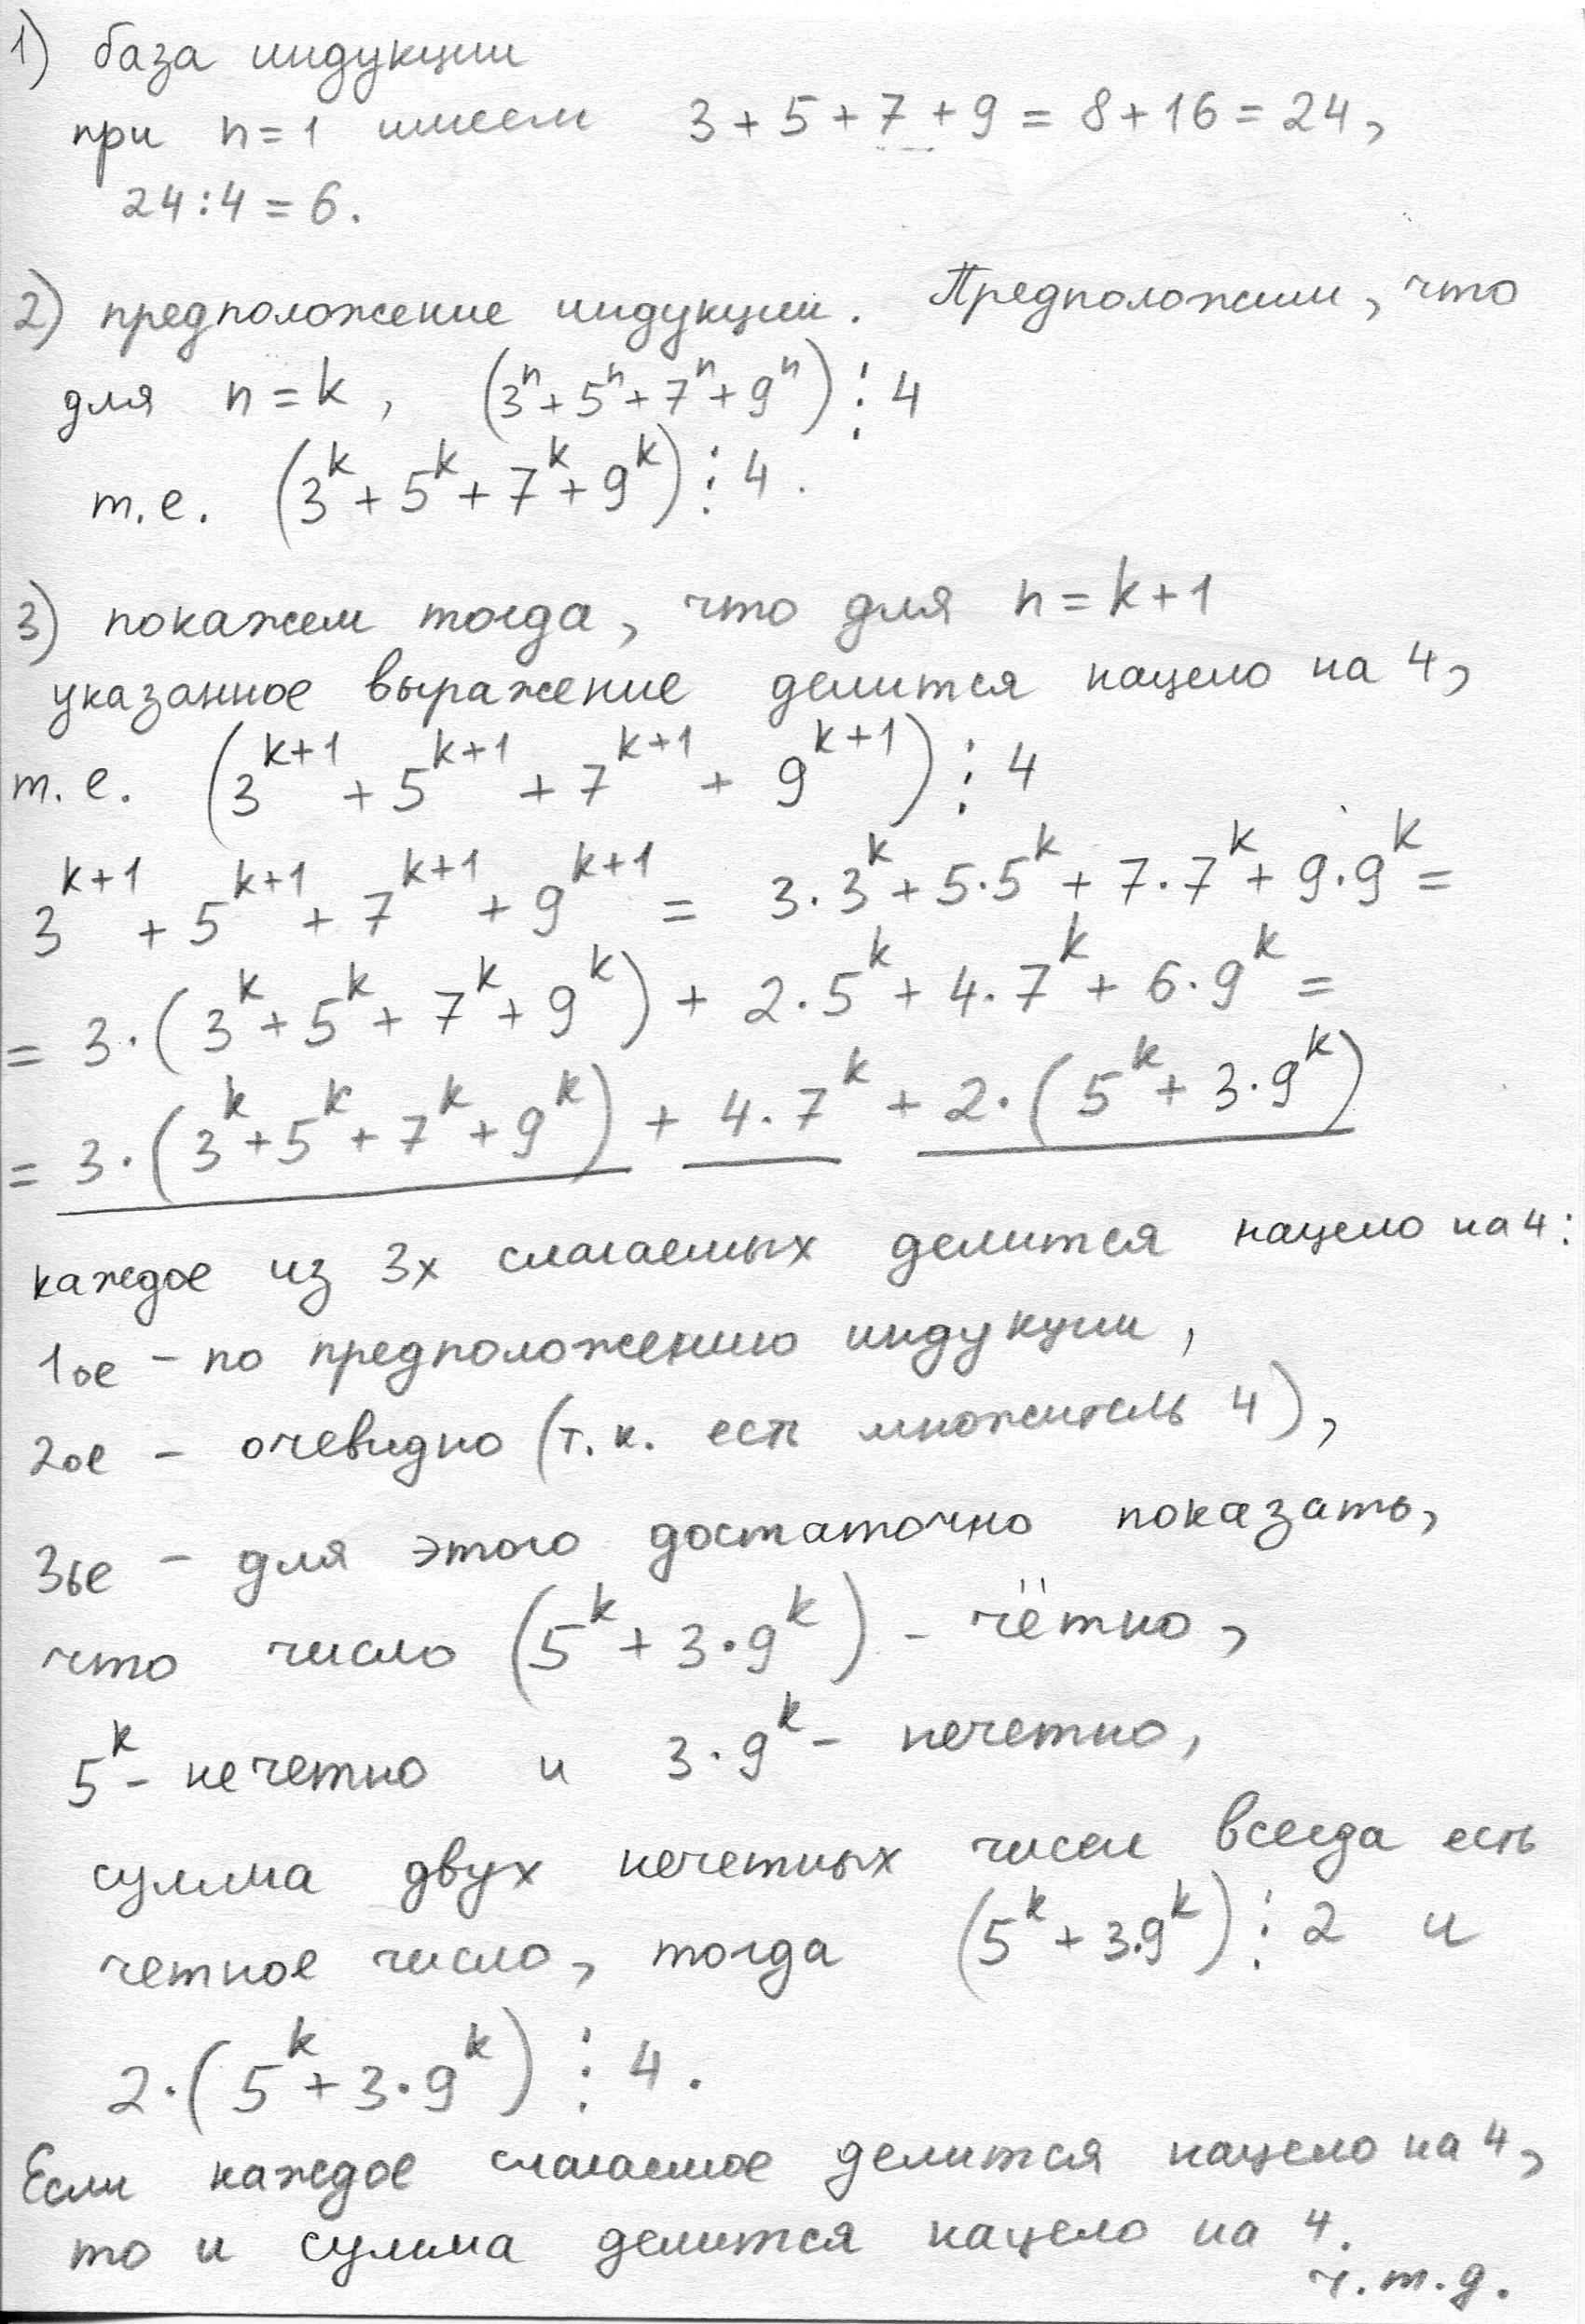 1) база индукции
при n=1 имеем 3+5+7+9=8+16=24,
24:4=6.
2) предположение индукции. Предположим, что
для n=k, (3ⁿ+5ⁿ+7ⁿ+9ⁿ)⋮4
т.е. (3ᵏ+5ᵏ+7ᵏ+9ᵏ)⋮4.
3) покажем тогда, что для n=k+1
указанное выражение делится нацело на 4,
т.е. (3ᵏ⁺¹+5ᵏ⁺¹+7ᵏ⁺¹+9ᵏ⁺¹)⋮4
3ᵏ⁺¹+5ᵏ⁺¹+7ᵏ⁺¹+9ᵏ⁺¹ = 3·3ᵏ+5·5ᵏ+7·7ᵏ+9·9ᵏ=
=3·(3ᵏ+5ᵏ+7ᵏ+9ᵏ)+2·5ᵏ+4·7ᵏ+6·9ᵏ=
=3·(3ᵏ+5ᵏ+7ᵏ+9ᵏ)+4·7ᵏ+2·(5ᵏ+3·9ᵏ)
каждое из 3х слагаемых делится нацело на 4:
1ое – по предположению индукции,
2ое – очевидно (т.к. есть множитель 4),
3ье – для этого достаточно показать,
что число (5ᵏ+3·9ᵏ) – чётно,
5ᵏ – нечетно и 3·9ᵏ – нечетно,
сумма двух нечетных чисел всегда есть
четное число, тогда (5ᵏ+3·9ᵏ)⋮2 и
2·(5ᵏ+3·9ᵏ)⋮4.
Если каждое слагаемое делится нацело на 4,
то и сумма делится нацело на 4.
ч.т.д.